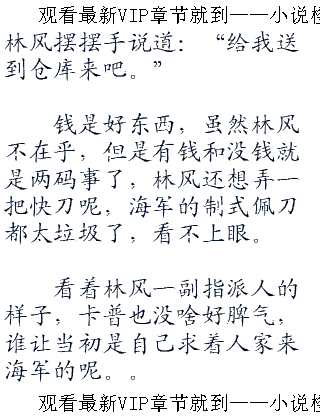 观看最新VIP章节就到——小说
林风摆摆手说道：“给我送
到仓库来吧。”
钱是好东西，虽然林风
不在乎，但是有钱和没钱就
是两码事了，林风还想弄一
把快刀呢，海军的制式佩刀
都太垃圾了，看不上眼。
看着林风一副指派人的
样子，卡普也没啥好脾气，
谁让当初是自己求着人家来
海军的呢。。
观看最新VIP章节就到——小说